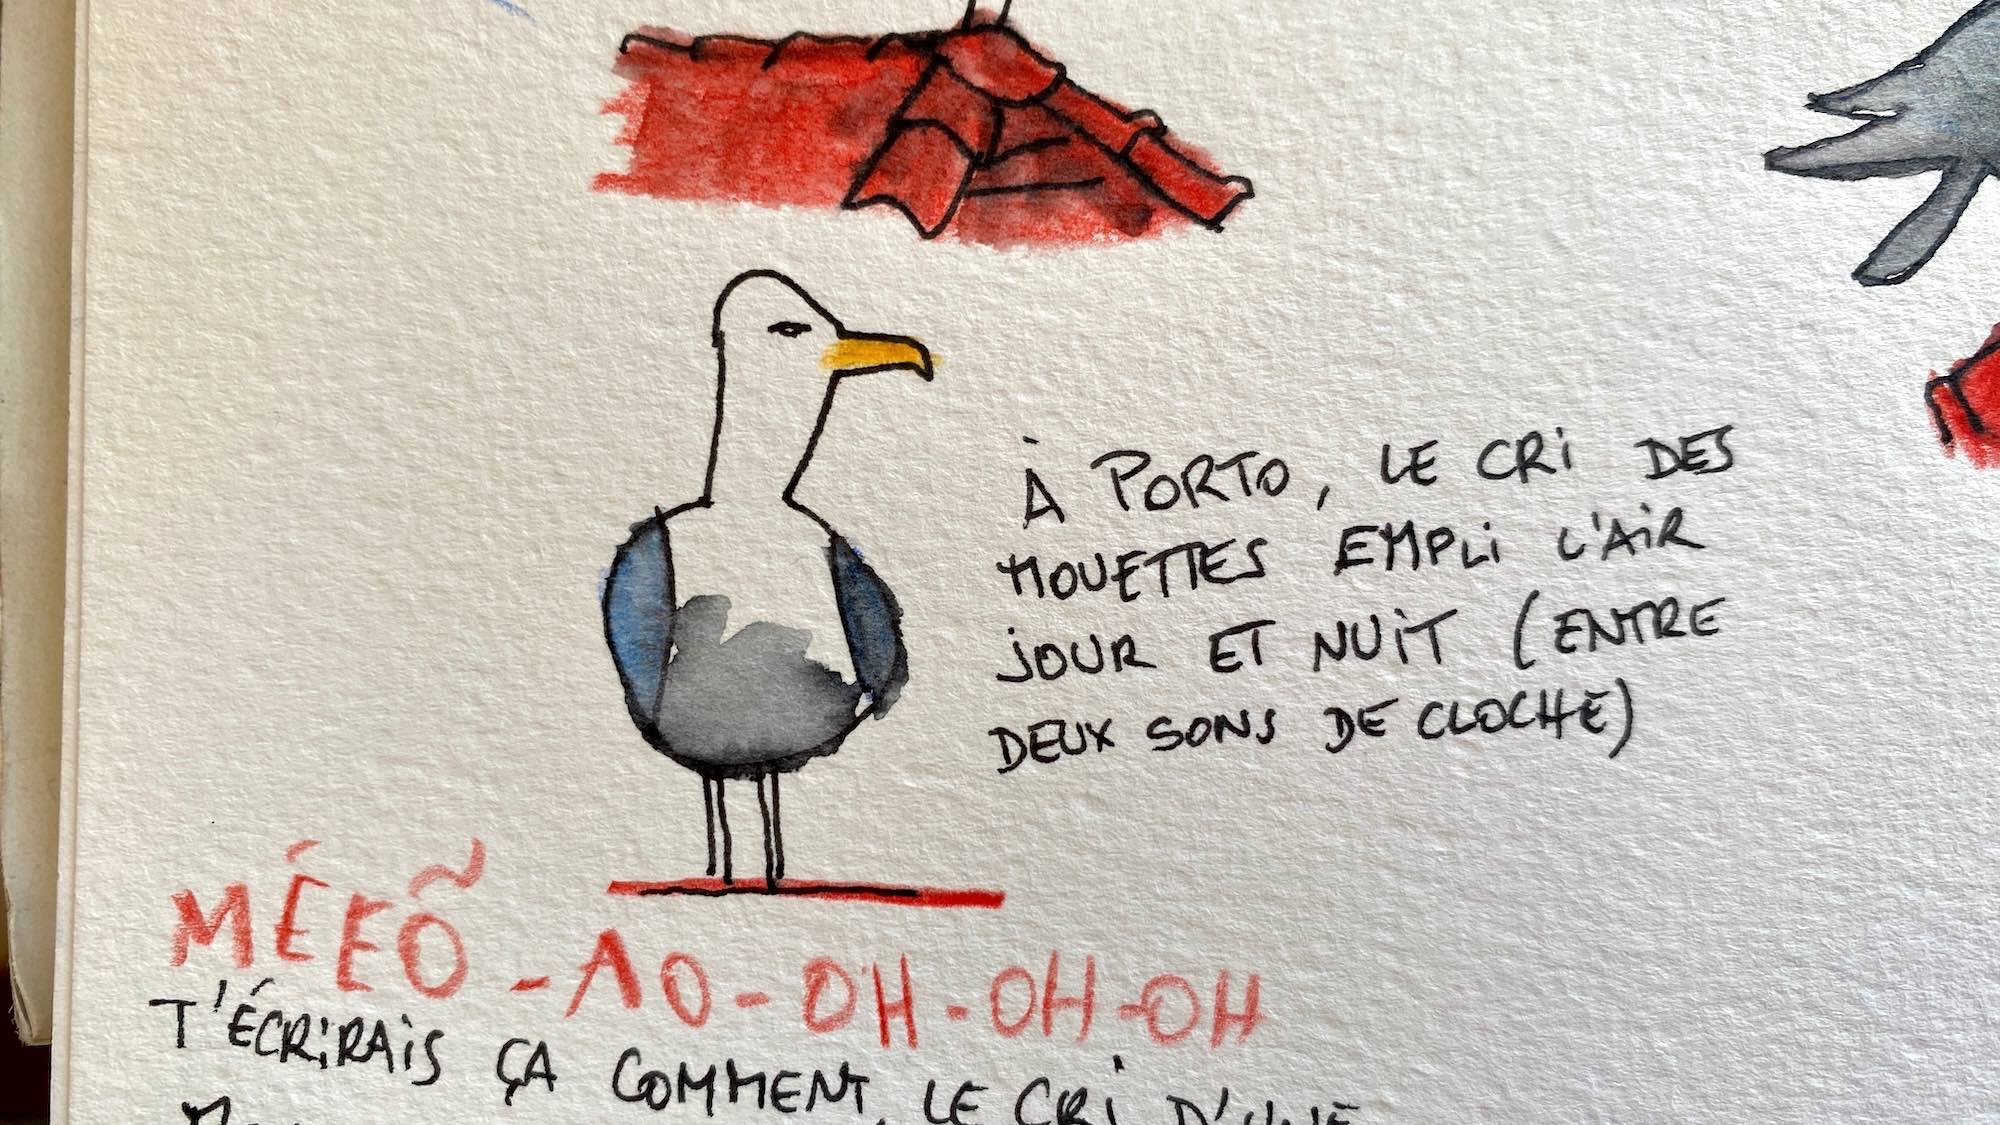 À PORTO, LE CRi DES
MOUETTES EMPLi L'AiR
jOUR ET NUiT (ENTRE
DEUX SONS DE CLOCHE)
MÉEÕ - AO - OH - OH - OH
T'ÉCRiRAiS ÇA COMMENT, LE CRi D'UNE